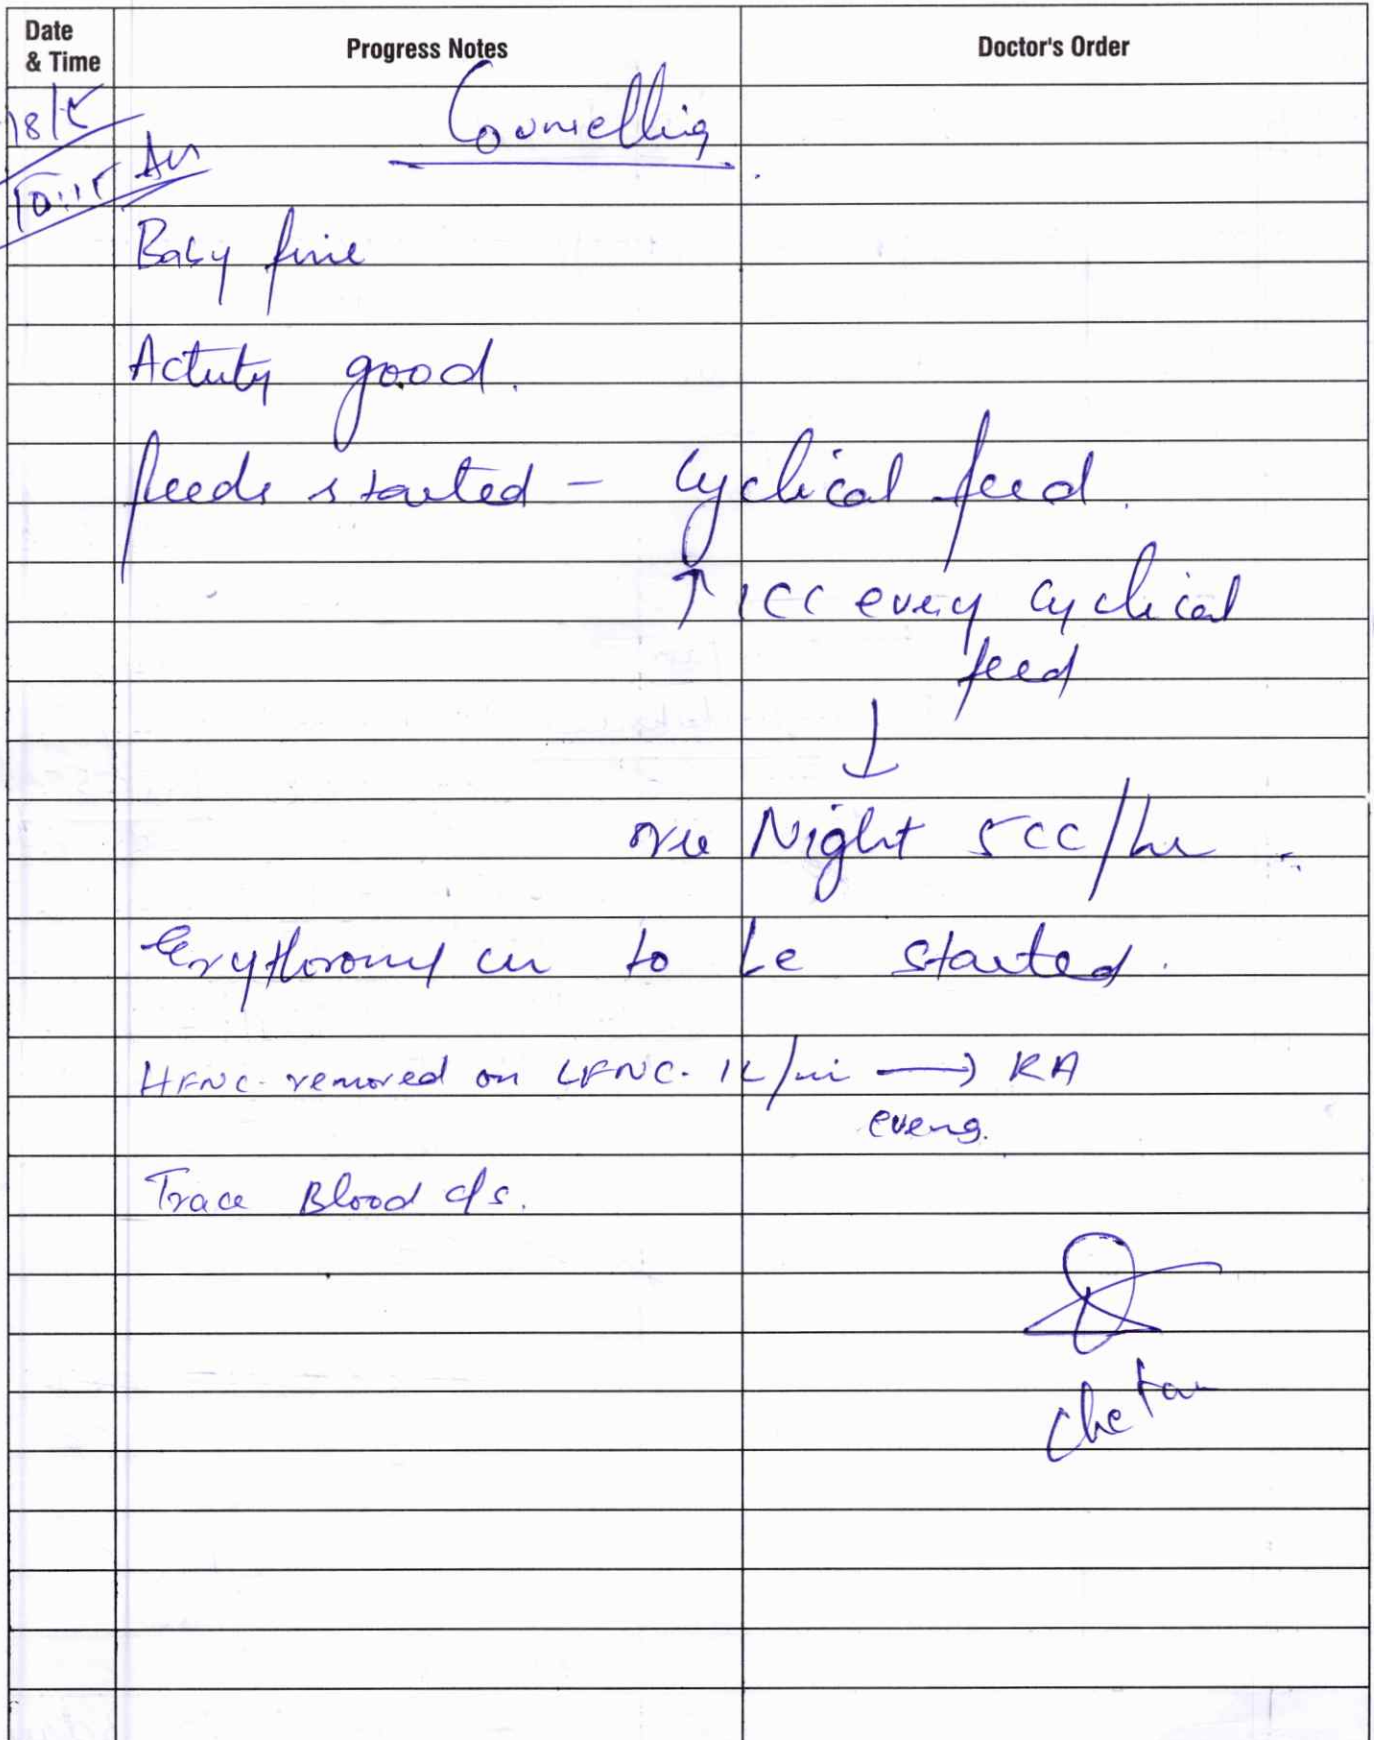 Date & Time Progress Notes Doctor's Order
18/5 Counselling
10:15 Am
Baby fine
Activity good.
feeds started - Cyclical feed.
↑ 1CC every cyclical
feed
↓
over Night 5CC/hr
Erythromycin to be started.
HFNC removed on LFNC. 1L/mi → RA
eveng.
Trace Blood c/s.
Chetan